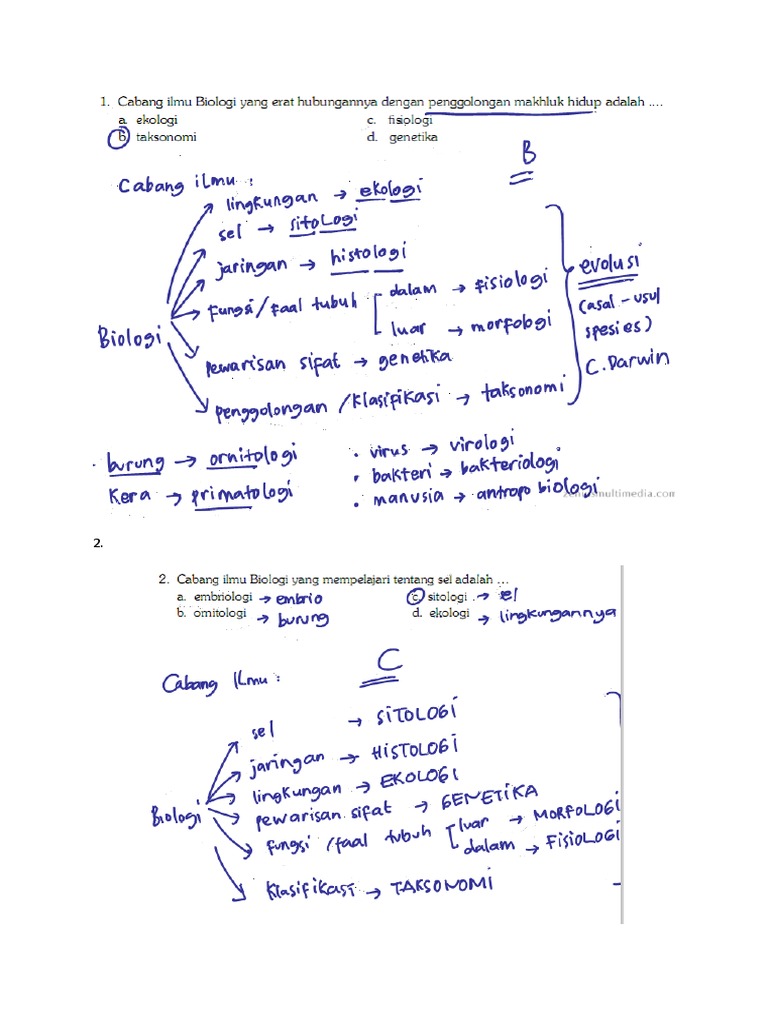 1. Cabang ilmu Biologi yang erat hubungannya dengan penggolongan makhluk hidup adalah ....
a. ekologi c. fisiologi
b. taksonomi d. genetika
B
Cabang ilmu :
lingkungan → ekologi
sel → sitologi
jaringan → histologi
fungsi/faal tubuh dalam → fisiologi
luar → morfologi
Biologi
pewarisan sifat → genetika
penggolongan /klasifikasi → taksonomi
evolusi
(asal-usul
spesies)
C. Darwin
. burung → ornitologi
Kera → primatologi
. virus → virologi
. bakteri → bakteriologi
. manusia → antropo biologi
multimedia.com
2.
2. Cabang ilmu Biologi yang mempelajari tentang sel adalah ...
a. embriologi → embrio c. sitologi . → sel
b. ornitologi → burung d. ekologi → lingkungannya
C
Cabang Ilmu :
sel → SITOLOGI
jaringan → HISTOLOGI
lingkungan → EKOLOGI
Biologi
pewarisan sifat → GENETIKA
fungsi /faal tubuh luar → MORFOLOGI
dalam → FISIOLOGI
klasifikasi → TAKSONOMI